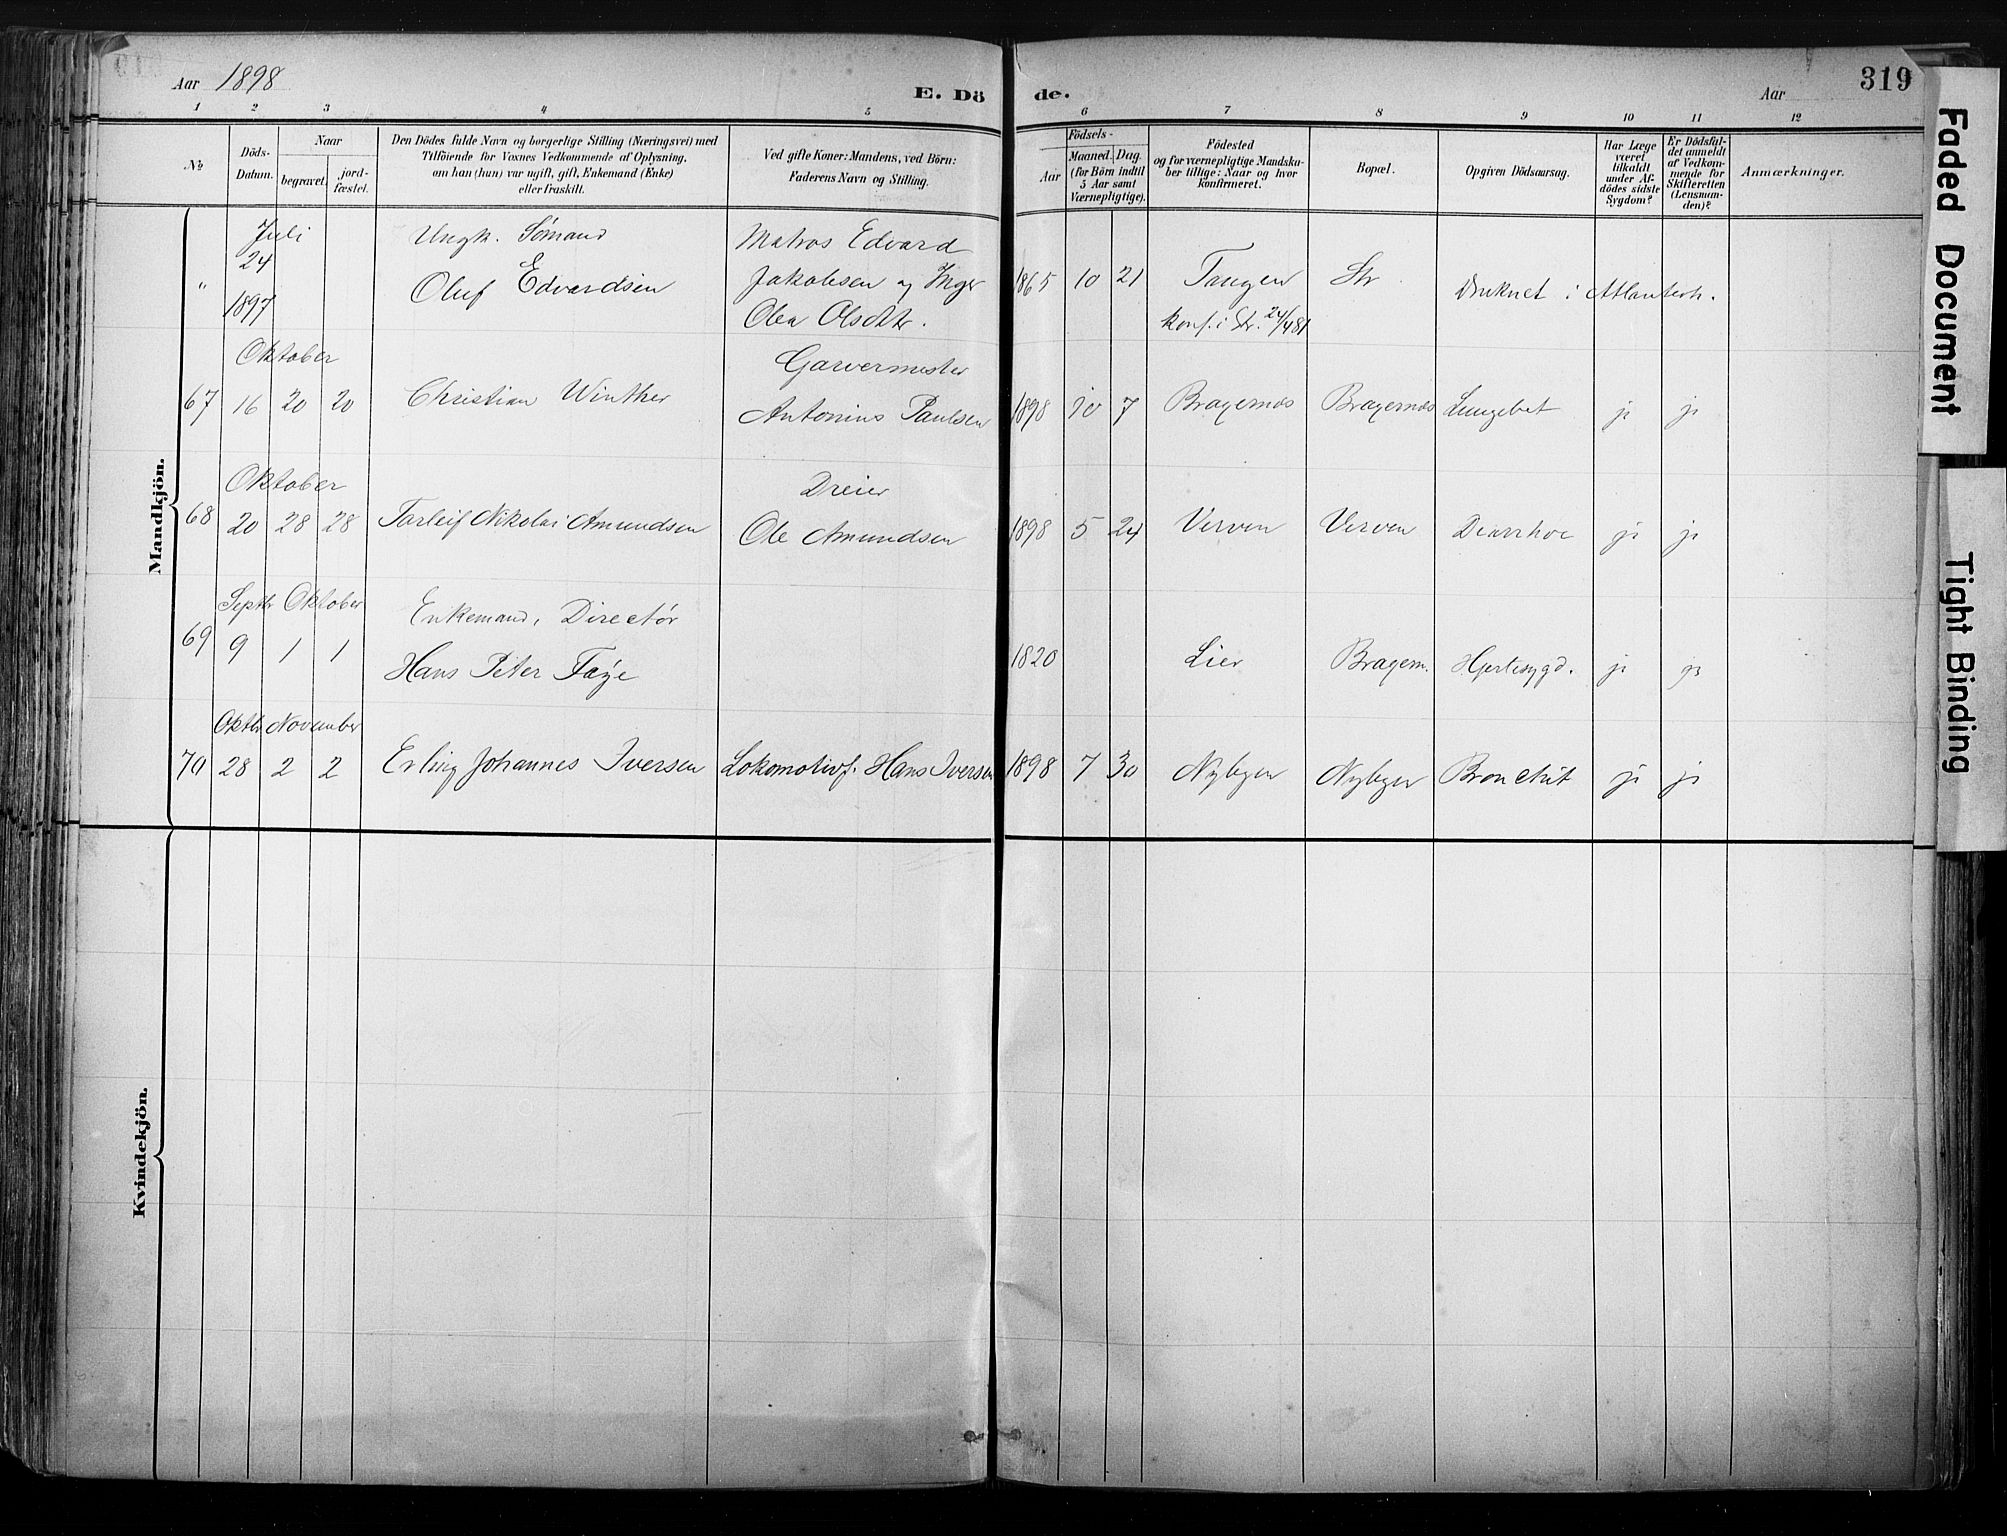 Aar 1898 E. Dö de. Aar 319
1 2 3 4 5 6 7 8 9 10 11 12
№ Döds-Datum. Naar begravet. jord-fæstet.
Den Dödes fulde Navn og borgerlige Stilling (Næringsvei) med
Tilföiende for Voxnes Vedkommende af Oplysning,
om han (hun) var ugift, gift, Enkemand (Enke)
eller fraskilt.
Ved gifte Koner: Mandens, ved Börn:
Faderens Navn og Stilling.
Födsels-
Aar Maaned. Dag.
(for Börn indtil
5 Aar samt
Værnepligtige).
Födested
og for værnepligtige Mandska-
ber tillige: Naar og hvor
konfirmeret.
Bopæl.
Opgiven Dödsaarsag.
Har Læge
været
tilkaldt
under Af-
dödes sidste
Sygdom?
Er Dödsfal-
det anmeldt
af Vedkom-
mende for
Skifteretten
(Lensman-
den)?
Anmærkninger.
Mandkjön.
Juli Ungk. Sømand Matros Edvard
24
" Oluf Edvardsen Jakobsen og Inger 1865 10 21 Tangen Str. Druknet i Atlanterh.
1897 Olea Olsdtr. konf. i Str. 24/4 81
Oktober Garvermester
67 16 20 20 Christian Winther Antonius Paulsen 1898 10 7 Bragernæs Bragernæs Lungebet ja ja
Oktober Dreier
68 20 28 28 Torleif Nikolai Amundsen Ole Amundsen 1898 5 24 Verven Verven Diarrhoe ja ja
Septbr Oktober Enkemand, Directør
69 9 1 1 Hans Peter Faye 1820 Lier Bragern. Hjertesygd. ja ja
Oktbr November
70 28 2 2 Erling Johannes Iversen Lokomotivf. Hans Iversen 1898 7 30 Nybyen Nybyen Bronchit ja ja
Kvindekjön.
Faded Document
Tight Binding